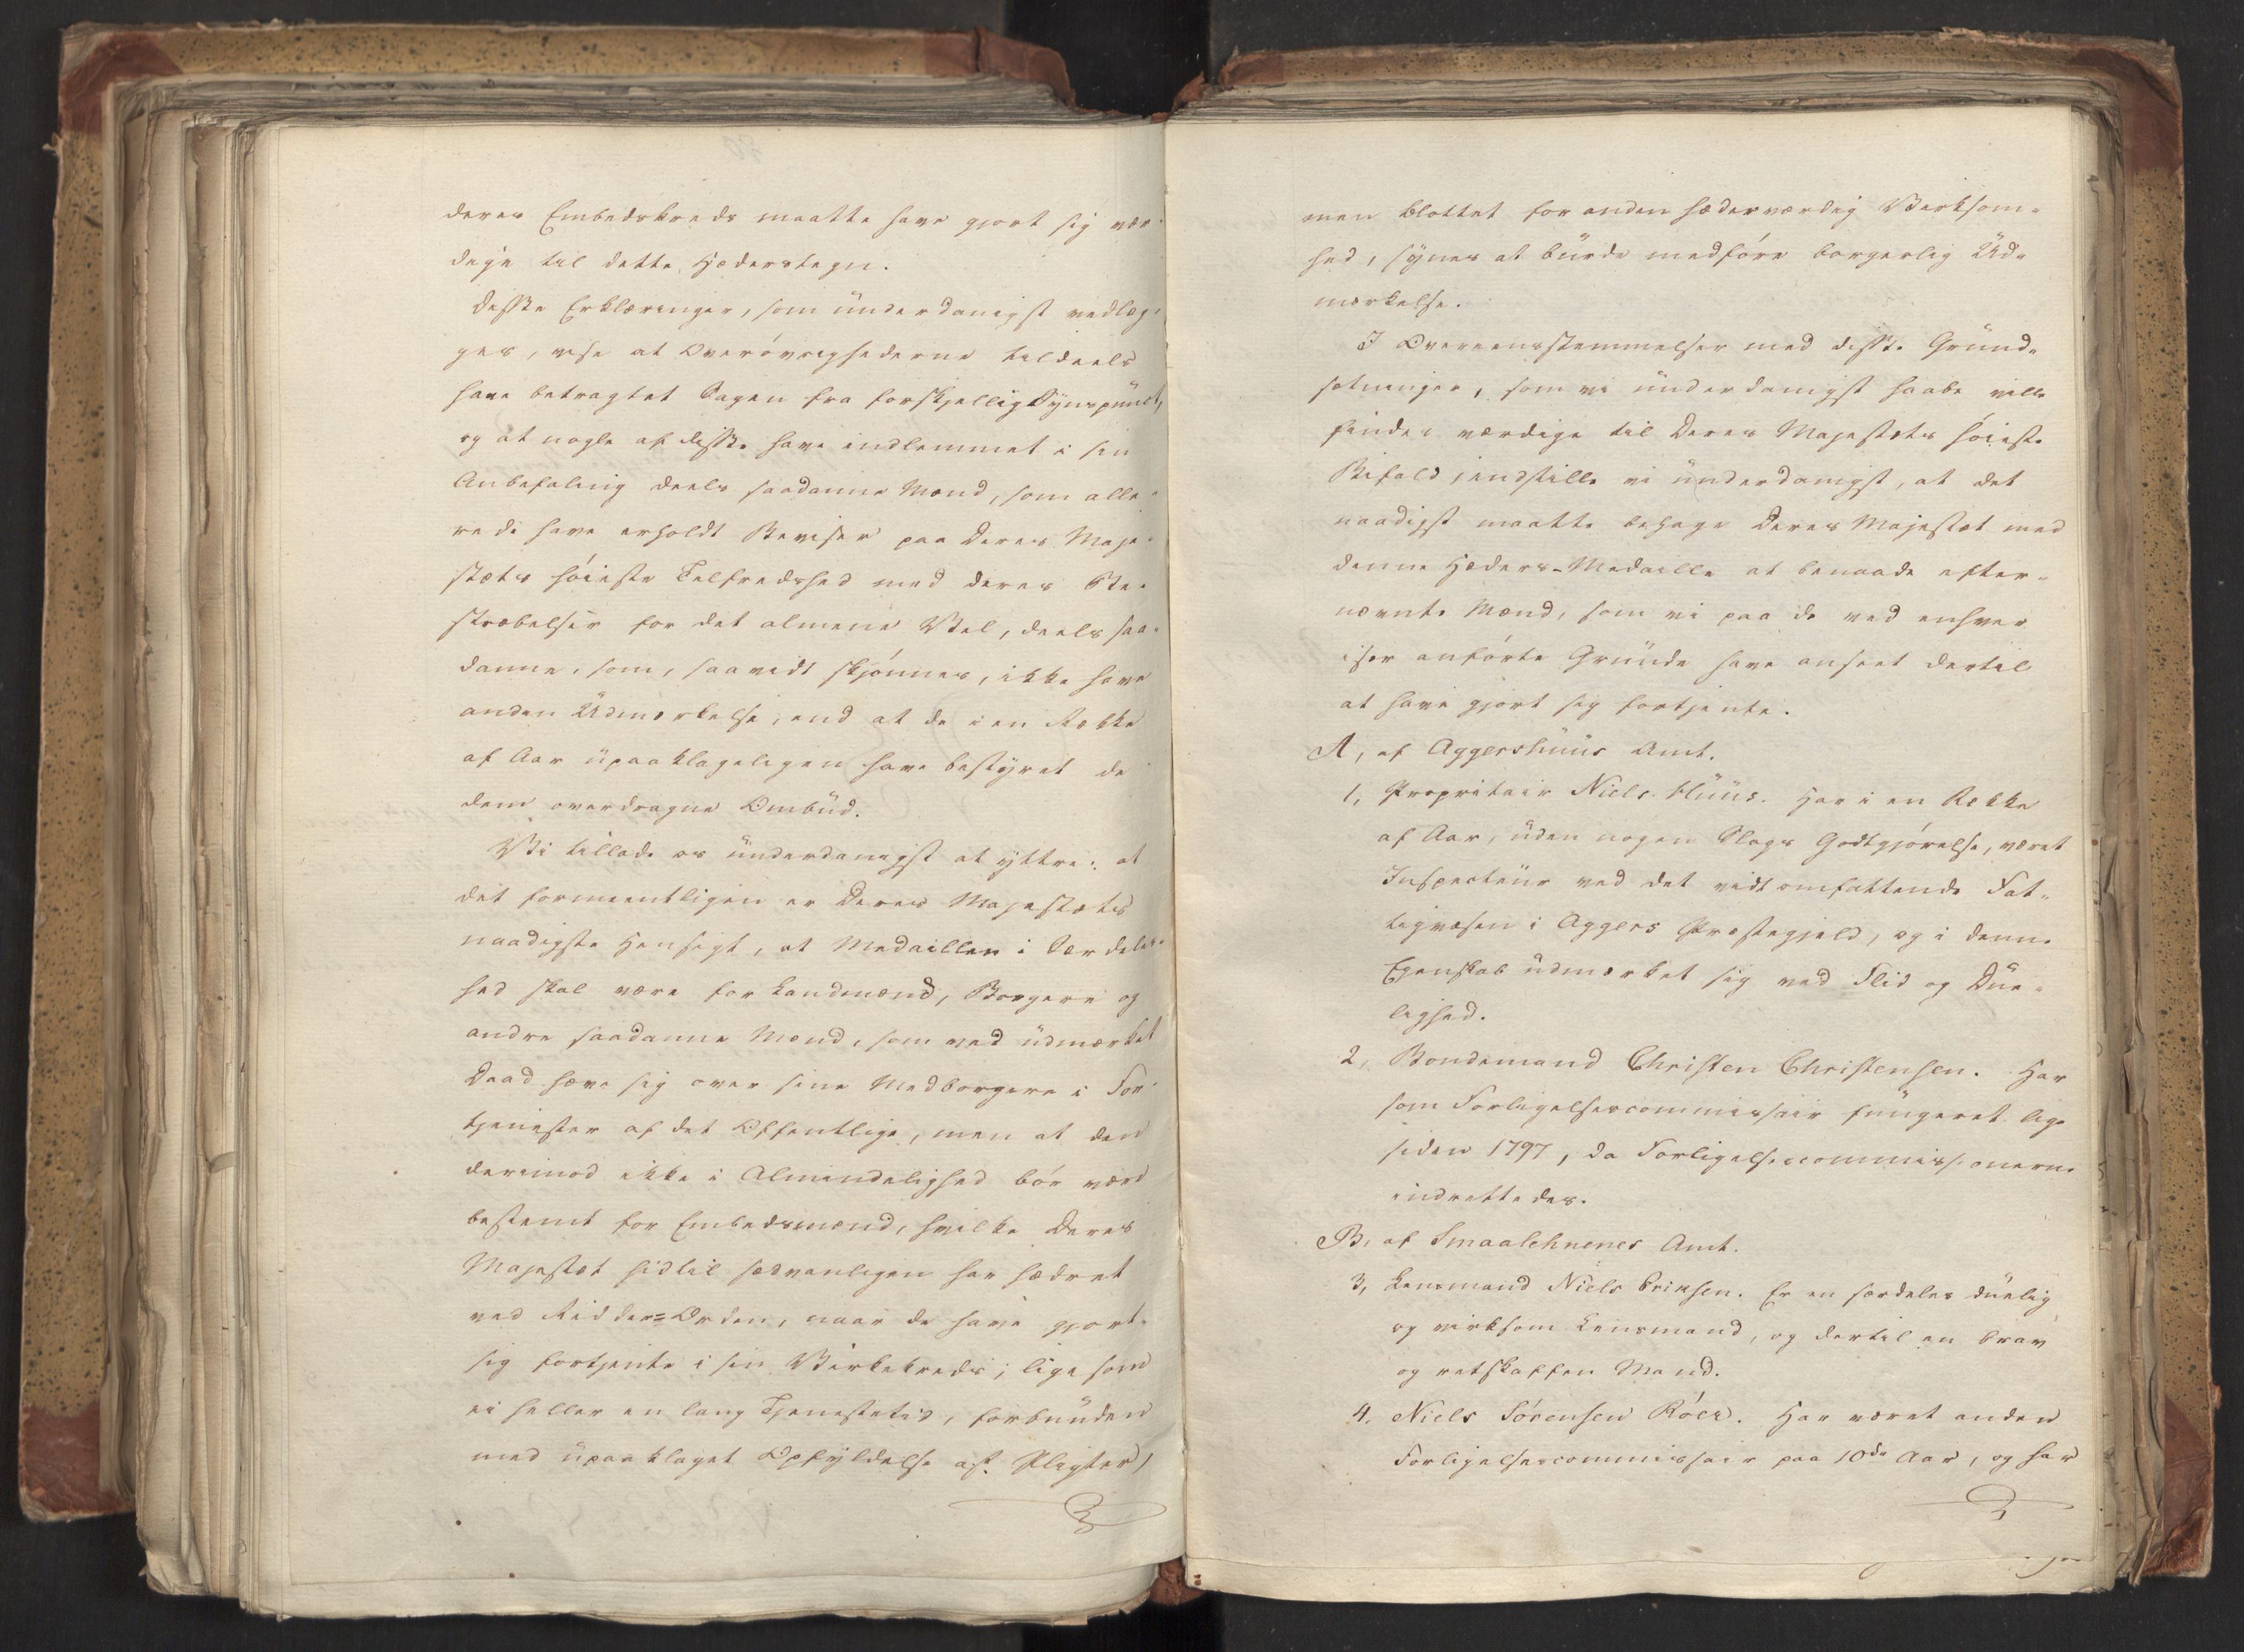 deres Embedskreds maatte have gjort sig vær-
dige til dette Hæderstegn.
Disse Erklæringer, som underdanigst vedlæg-
ges, vise at Overøvrighederne tildeels
have betragtet Sagen fra forskjellig Synspunct,
og at nogle af disse have indlemmet i sin
Anbefaling deels saadanne Mænd, som alle-
rede have erholdt Beviser paa Deres Maje-
stæts høieste Tilfredshed med deres Be-
stræbelser for det almene Vel, deels saa-
danne, som, saavidt skjønnes, ikke have
anden Udmærkelse, end at de i en Række
af Aar upaaklageligen have bestyret de
dem overdragne Ombud.
Vi tillade os underdanigst at yttre: at
det formeentligen er Deres Majestæts
naadigste Hensigt, at Medaillen i Særdeles-
hed skal være for Landmænd, Borgere og
andre saadanne Mænd, som ved udmærket
Daad hæve sig over sine Medborgere i For-
tjenester af det Offentlige, men at den
derimod ikke i Almindelighed bør være
bestemt for Embedsmænd, hvilke Deres
Majestæt hidtil sædvanligen har hædret
ved Ridder-Orden, naar de have gjort
sig fortjente i sin Virkekreds; lige som
ei heller en lang Tjenestetid, forbunden
med upaaklaget Opfyldelse af Pligter,
men blottet for anden hæderværdig Virksom-
hed, synes at burde medføre borgerlig Ud-
mærkelse.
I Overeensstemmelser med disse Grund-
sætninger, som vi underdanigst haabe ville
findes værdige til Deres Majestæts høieste
Bifald, indstille vi underdanigst, at det
naadigst maatte behage Deres Majestæt med
denne Hæders-Medaille at benaade efter-
nævnte Mænd, som vi paa de ved enhver
især anførte Grunde have anseet dertil
at have gjort sig fortjente.
A, af Aggershuus Amt.
1, Propritair Niels Huus. Har i en Række
af Aar, uden nogen Slags Godtgjørelse, været
Inspecteur ved det vidtomfattende Fat-
tigvæsen i Aggers Præstegjeld, og i denne
Egenskab udmærket sig ved Flid og Due-
lighed.
2, Bondemand Christen Christensen. Har
som Forligelsescommissair fungeret lige
siden 1797, da Forligelsescommissionerne
indrettedes.
B, af Smaalehnenes Amt.
3, Lensmand Niels Eriksen. Er en særdeles duelig
og virksom Lensmand, og dertil en brav
og retskaffen Mand.
4, Niels Sørensen Röer. Har været anden
Forligelsescommissair paa 10de Aar, og har